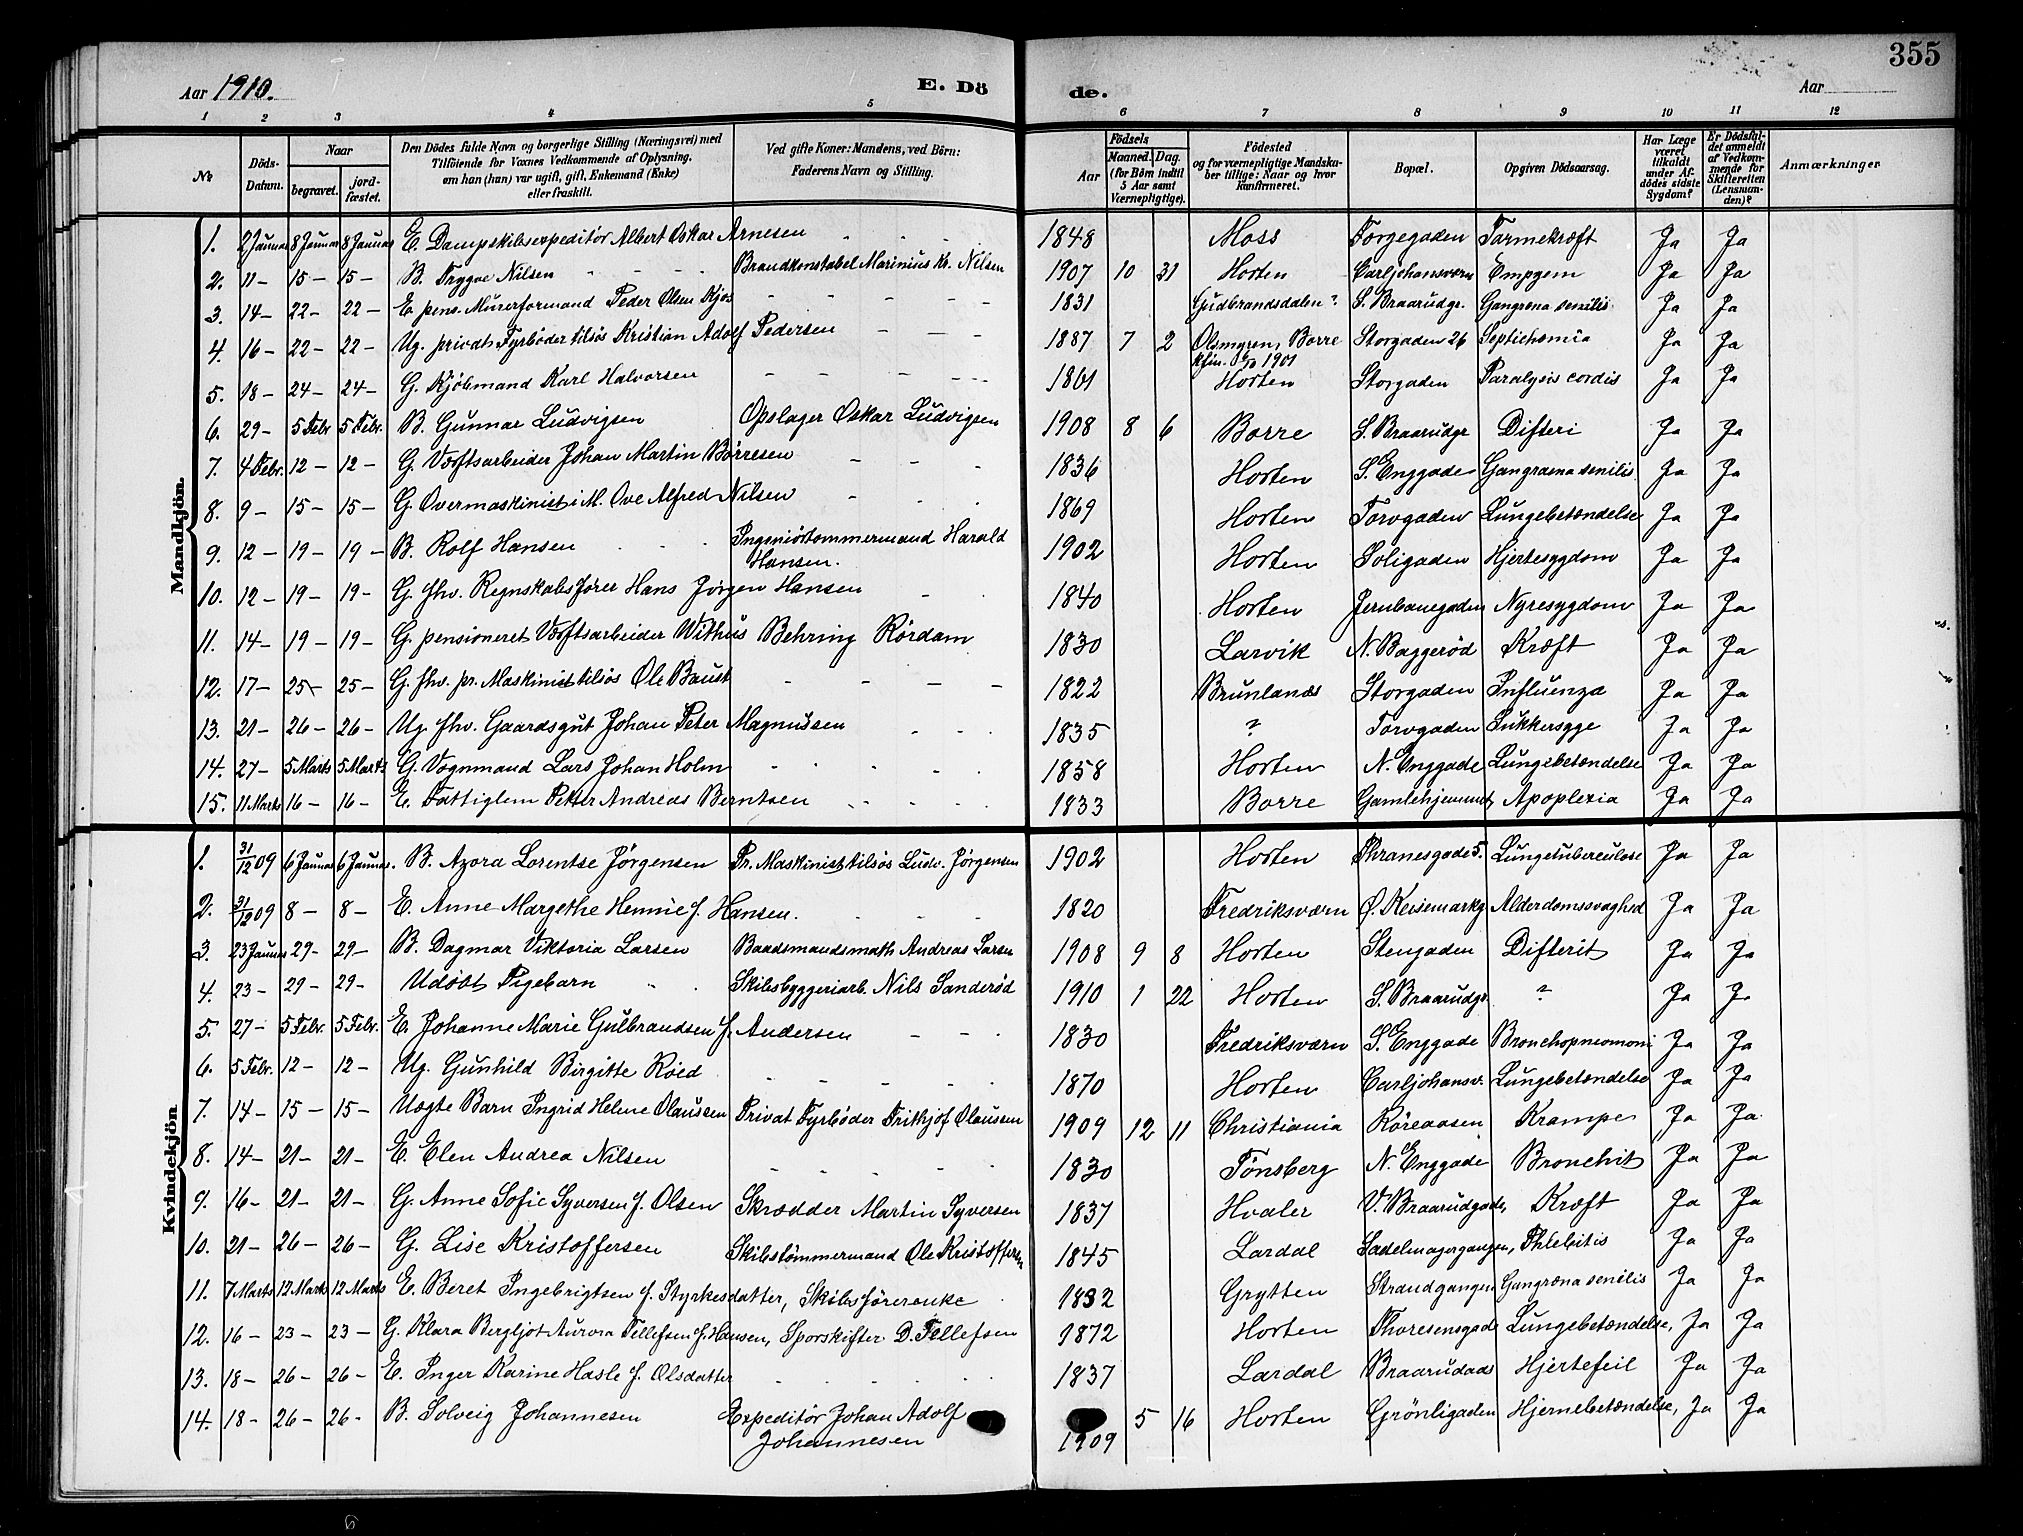 355
Aar 1910. E. Dö de. Aar
1 2 3 4 5 6 7 8 9 10 11 12
№ Döds-Datum. Naar begravet. jord-fæstet. Den Dödes fulde Navn og borgerlige Stilling (Næringsvei) med Tilföiende for Voxnes Vedkommende af Oplysning, om han (hun) var ugift, gift, Enkemand (Enke) eller fraskilt. Ved gifte Koner: Mandens, ved Börn: Faderens Navn og Stilling. Födsels Aar Maaned. Dag. (for Börn indtil 5 Aar samt Værnepligtige). Födested og for værnepligtige Mandskaber tillige: Naar og hvor konfirmeret. Bopæl. Opgiven Dödsaarsag. Har Læge været tilkaldt under Afdödes sidste Sygdom? Er Dödsfaldet anmeldt af Vedkommende for Skifteretten (Lensmanden)? Anmærkninger
Mandkjön.
1. 2 Januar 8 Januar 8 Januar E. Dampskibsexpeditör Albert Oskar Arnesen 1848 Moss Torvegaden Tarmekræft Ja Ja
2. 11 – 15 – 15 – B. Trygve Nilsen Brandkonstabel Marinius Kr. Nilsen 1907 10 31 Horten Carljohansværn Empyem Ja Ja
3. 14 – 22 – 22 – E. pens. Murerformand Peder Olsen Kjøs 1831 Gudbrandsdalen ? S. Braarudgr. Gangrena senilis Ja Ja
4. 16 – 22 – 22 – Ug. privat Fyrbøder tilsös Kristian Adolf Pedersen 1887 7 2 Borre Storgaden 26 Septichæmia Ja Ja
1901
5. 18 – 24 – 24 – G. Kjöbmand Karl Halvorsen 1861 Horten Storgaden Paralysis cordis Ja Ja
6. 29 – 5 Febr 5 Febr. B. Gunnar Ludvigsen Opslager Oskar Ludvigsen 1908 8 6 Borre S. Braarudgr Difteri Ja Ja
7. 4 Febr. 12 – 12 – G. Værftsarbeider Johan Martin Børresen 1836 Horten S. Enggade Gangraena senilis Ja Ja
8. 9 – 15 – 15 – G. Overmaskinist i M. Ove Alfred Nilsen 1869 Horten Torvgaden Lungebetændelse Ja Ja
9. 12 – 19 – 19 – B. Rolf Hansen Ingeniörtømmermand Harald Hansen. 1902 Horten Soligaden Hjertesygdom Ja Ja
10. 12 – 19 – 19 – G. fhv. Regnskabsfører Hans Jørgen Hansen 1840 Horten Jernbanegaden Nyresygdom Ja Ja
11. 14 – 19 – 19 – G. pensioneret Værftsarbeider Withus Behring Rördam 1830 Larvik N. Baggerød Kræft Ja Ja
12. 17 – 25 – 25 – G. fhv. pr. Maskinist tilsös Ole Baust 1822 Brunlanæs Storgaden Influenza Ja Ja
13. 21 – 26 – 26 – Ug. fhv. Gaardsgut Johan Peter Magnussen 1835 ? Torvgaden Sukkersyge Ja Ja
14. 27 – 5 Marts 5 Marts G. Vognmand Lars Johan Holm 1858 Horten N. Enggade Lungebetændelse Ja Ja
15. 11 Marts 16 – 16 – E. Fattiglem Petter Andreas Berntsen 1833 Borre Gamlehjemmet Apoplexia Ja Ja
Kvindekjön
1. 31/12 09 6 Januar 6 Januar. B. Azora Lorentse Jørgensen Pr. Maskinist tilsös Ludv. Jørgensen 1902 Horten Thranesgade 5. Lungetuberculose Ja Ja
2. 31/12 09 8 – 8 – E. Anne Margethe Hennie f. Hansen. 1820 Fredriksværn Ø. Keisemarkg Alderdomssvaghed Ja Ja
3. 23 Januar 29 – 29 – B. Dagmar Viktoria Larsen Baadsmandsmath Andreas Larsen 1908 9 8 Horten Stengaden Difterit Ja Ja
4. 23 – 29 – 29 – Udöbt Pigebarn Skibsbyggeriarb. Nils Sanderød 1910 1 22 Horten S. Braarudgr. ? Ja Ja
5. 27 – 5 Febr. 5 Febr. E. Johanne Marie Gulbrandsen f. Andersen 1830 Fredriksværn S. Enggade Bronchopneomoni Ja Ja
6. 5 Febr. 12 – 12 – Ug. Gunhild Birgitte Røed 1870 Horten Carljohansv. Lungebetændelse Ja Ja
7. 14 – 15 – 15 – Uægte Barn Ingrid Helene Olaussen Privat Fyrbøder Frithjof Olaussen 1909 12 11 Christiania Röreaasen Krampe Ja Ja
8. 14 – 21 – 21 – E. Elen Andrea Nilsen 1830 Tönsberg N. Enggade Bronchit Ja Ja
9. 16 – 21 – 21 – G. Anne Sofie Syversen f. Olsen Skrædder Martin Syversen 1837 Hvaler V. Braarudgade, Kræft Ja Ja
10. 21 – 26 – 26 – G. Lise Kristoffersen Skibstömmermand Ole Kristoffersen 1845 Lardal Sadelmagergangen, Phlebitis Ja Ja
11. 7 Marts 12 Marts 12 Marts E. Beret Ingebrigtsen f. Styrkesdatter, Skibsførerenke 1832 Grytten Strandgangen Gangræna senilis Ja Ja
12. 16 – 23 – 23 – G. Klara Bergljot Aurora Tellefsen f. Hansen, Sporskifter D. Tellefsen 1872 Horten Thoresensgade Lungebetændelse, Ja Ja
13. 18 – 26 – 26 – E. Inger Karine Hasle f. Olsdatter 1837 Lardal Braarudaas Hjertefeil Ja Ja
14. 18 – 26 – 26 – B. Solveig Johannesen Expeditör Johan Adolf Johannesen 1909 5 16 Horten Grönligaden Hjernebetændelse, Ja Ja